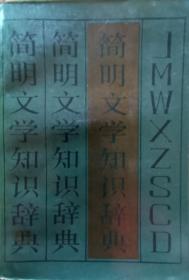 简明文学知识辞典
简明文学知识辞典
简明文学知识辞典
JMWXZSCD